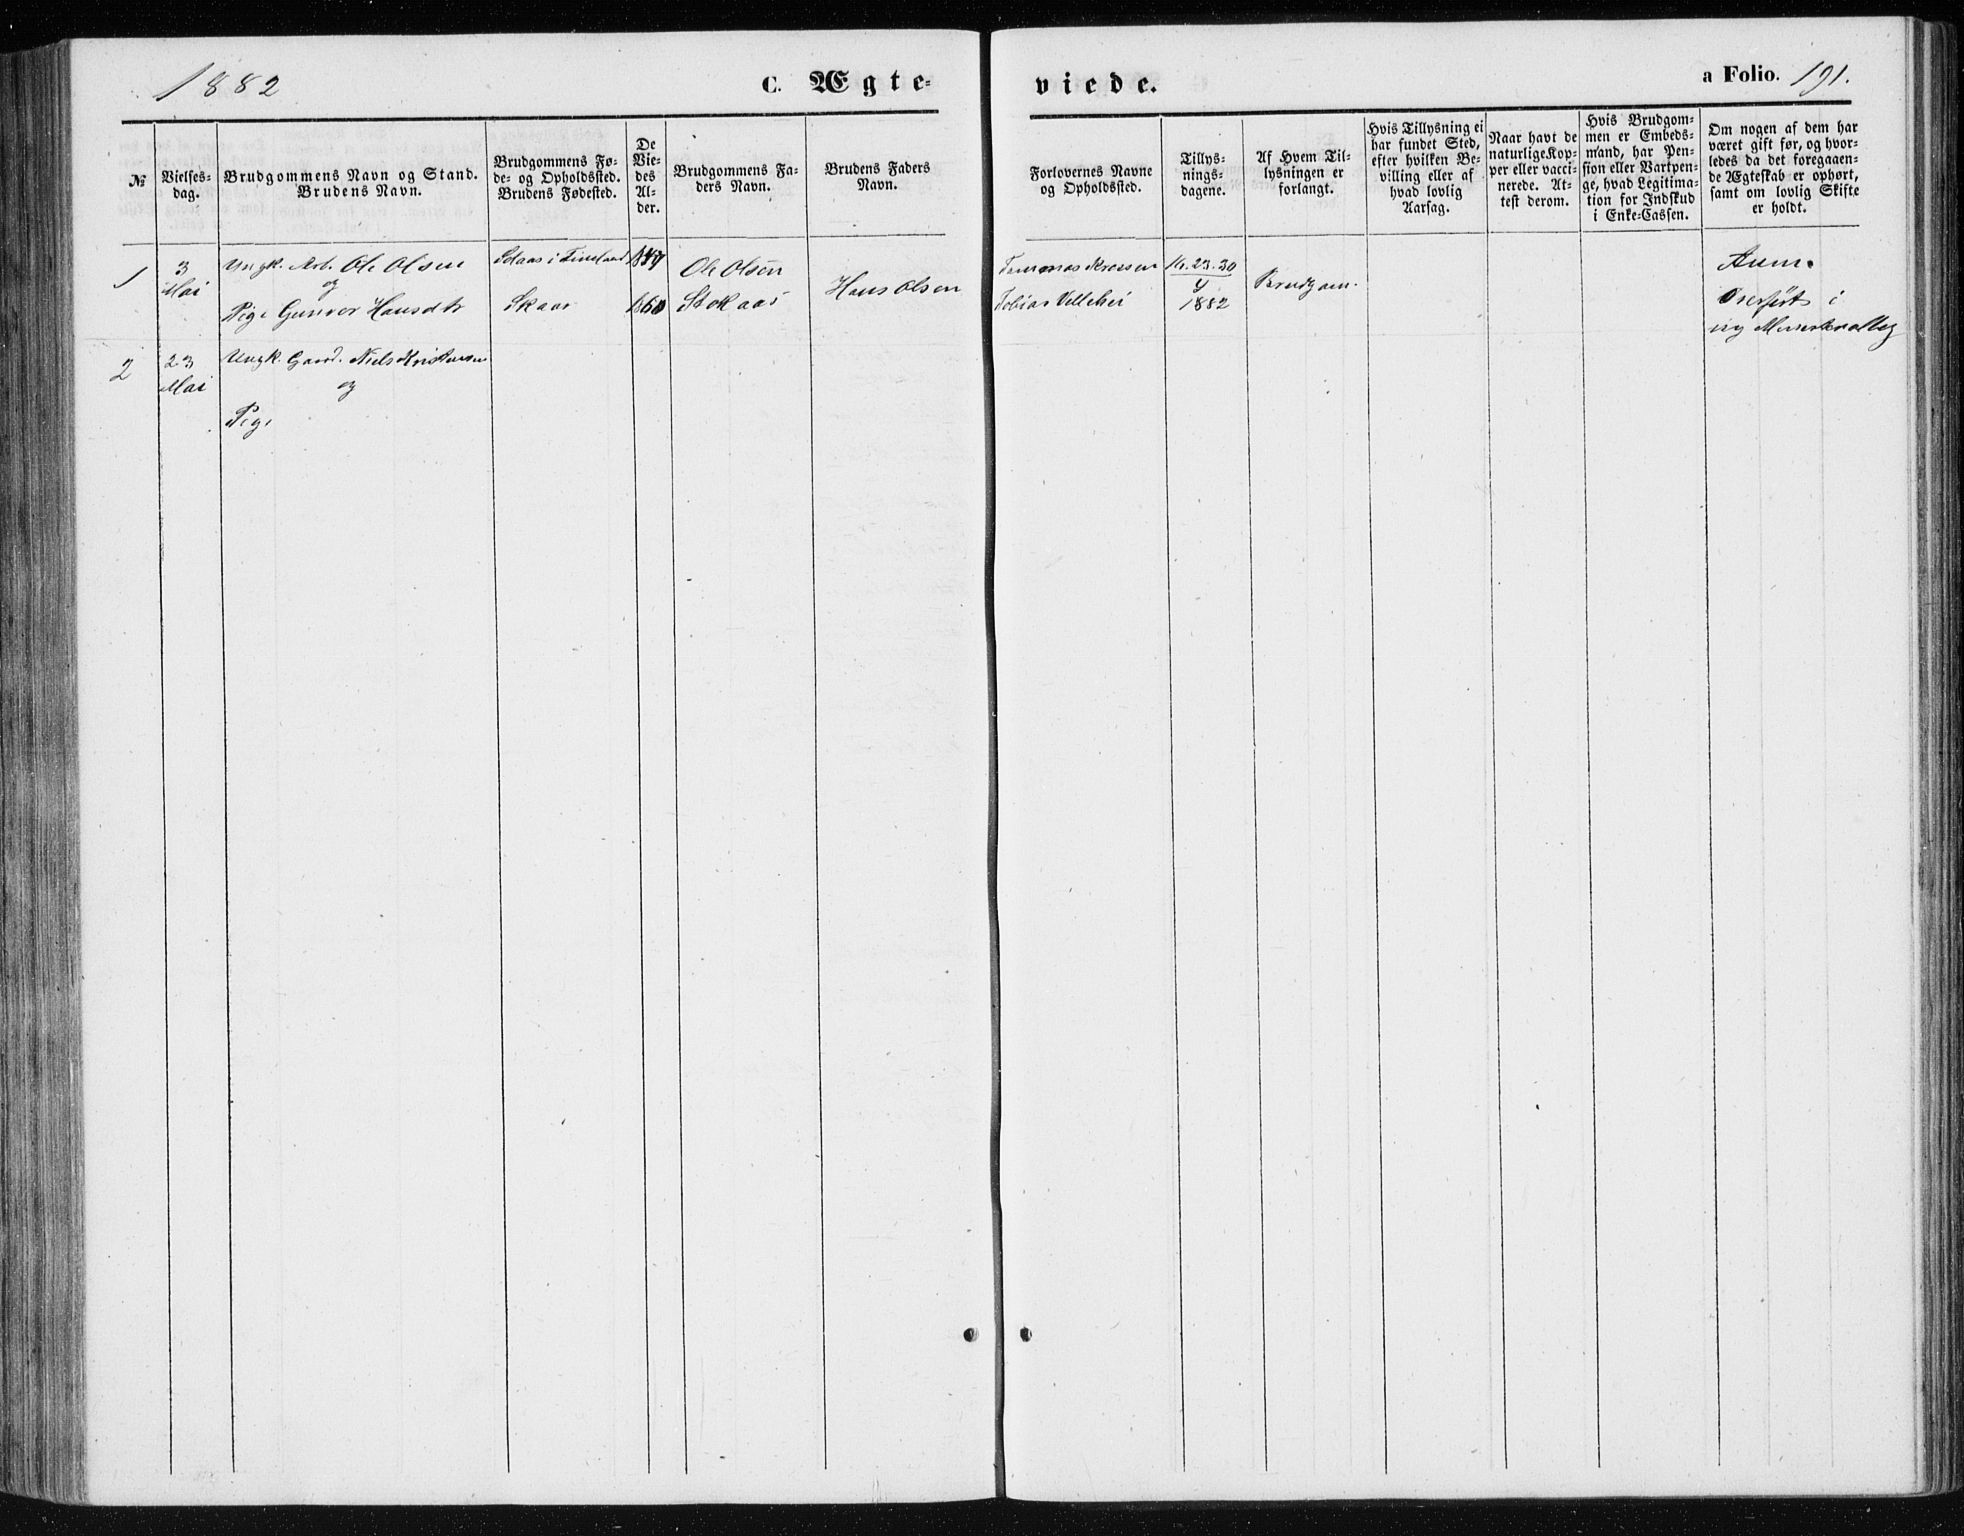 1882
C. Ægte-
viede.
a Folio. 191.
№
Vielses-
dag.
Brudgommens Navn og Stand.
Brudens Navn.
Brudgommens Fø-
de- og Opholdssted.
Brudens Fødested.
De
Vie-
des
Al-
der.
Brudgommens Fa-
ders Navn.
Brudens Faders
Navn.
Forlovernes Navne
og Opholdssted.
Tillys-
nings-
dagene.
Af Hvem Til-
lysningen er
forlangt.
Hvis Tillysning ei
har fundet Sted,
efter hvilken Be-
villing eller af
hvad lovlig
Aarsag.
Naar havt de
naturlige Kop-
per eller vacci-
nerede. At-
test derom.
Hvis Brudgom-
men er Embeds-
mand, har Pen-
sion eller Vartpen-
ge, hvad Legitima-
tion for Indskud
i Enke-Cassen.
Om nogen af dem har
været gift før, og hvor-
ledes da det foregaaen-
de Ægteskab er ophørt,
samt om lovlig Skifte
er holdt.
1
3
Mai
Ungk. Arb. Ole Olsen
og
Pige Gunvor Hansdtr
i
Skaar
1860
Ole Olsen
Hans Olsen
Tobias
16. 23. 30
4
1882
Brudgom.
Anm.
Overført i
ny
2
23
Mai
Ungk. Gaard. Niels Kristensen
og
Pige